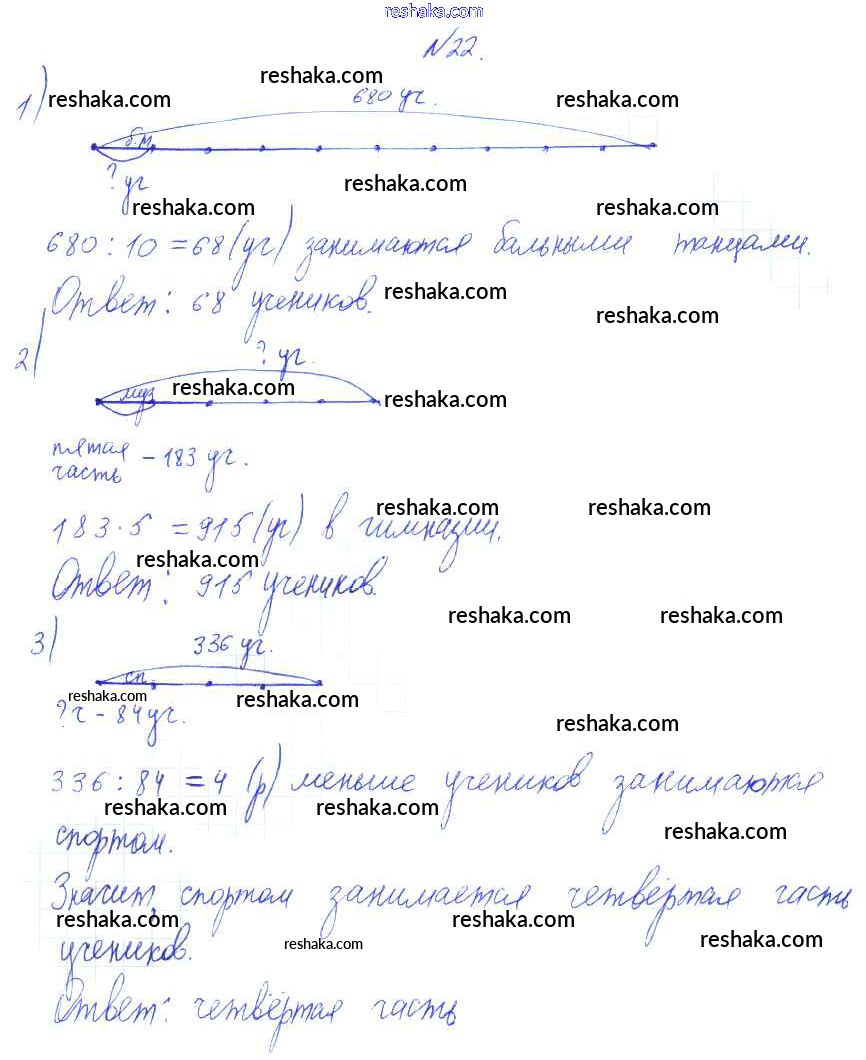 reshaka.com
№22.
reshaka.com
1) reshaka.com 680 уч. reshaka.com
б.т.
? уч
reshaka.com
reshaka.com reshaka.com
680 : 10 = 68 (уч) занимаются бальными танцами.
Ответ: 68 учеников. reshaka.com
reshaka.com
2) ? уч.
муз reshaka.com
reshaka.com
пятая
часть – 183 уч.
reshaka.com reshaka.com
183 · 5 = 915 (уч) в гимназии.
reshaka.com
Ответ: 915 учеников.
reshaka.com reshaka.com
3) 336 уч.
сп.
reshaka.com reshaka.com
? ч – 84 уч.
reshaka.com
336 : 84 = 4 (р) меньше учеников занимаются
reshaka.com reshaka.com
спортом. reshaka.com
Значит, спортом занимается четвёртая часть
reshaka.com reshaka.com
учеников. reshaka.com reshaka.com
Ответ: четвёртая часть